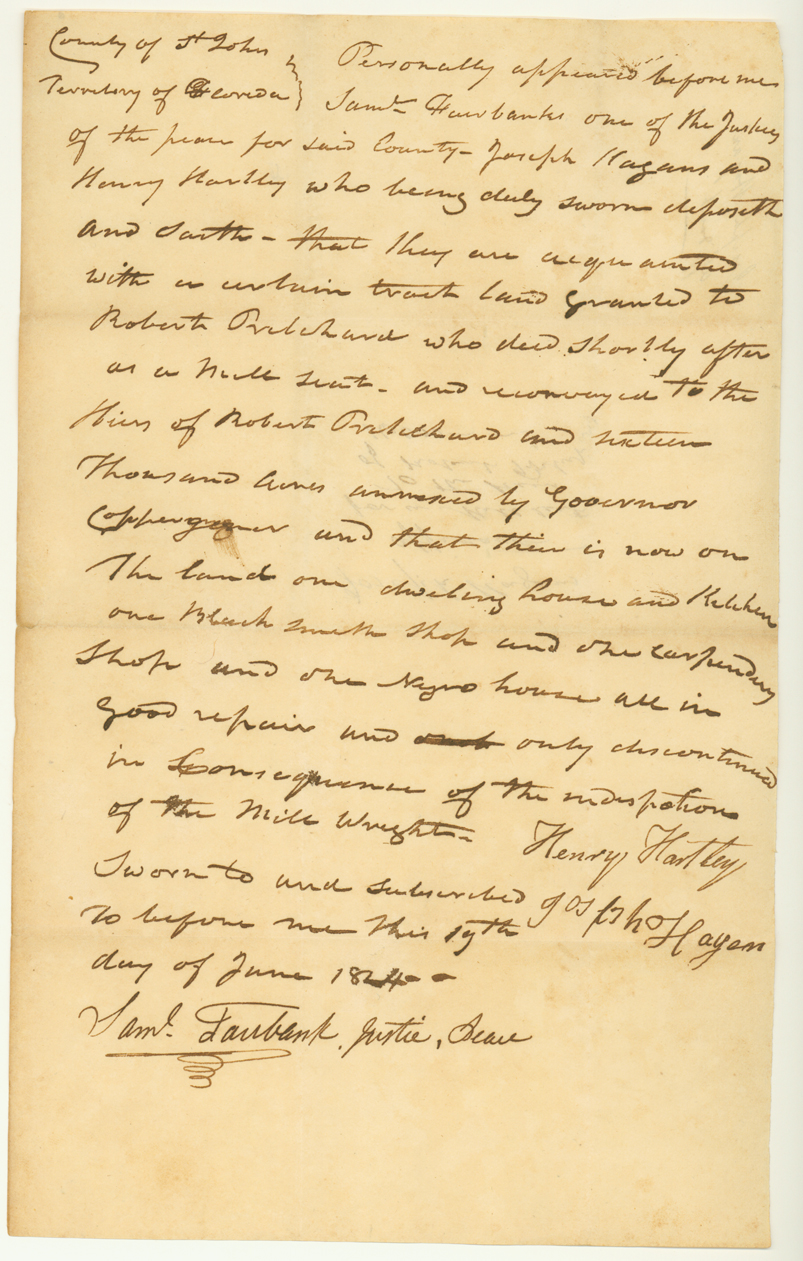 County of St Johns } Personally appeared before me
Territory of Floreda } Saml Fairbanks one of the Justices
of the peace for said County – Joseph Hagans and
Henry Hartley who being duly sworn deposeth
and saith – that they are acquainted
with a certain track land granted to
Robert Pritchard who deed shortly after
as a Mill seat – and reconvayed to the
Hiers of Robert Pritchard and sixteen
Thousand acres annexed by Governor
Coppengner and that their is now on
The land one dweling house and Kitchen
one Black smith Shop and one carpenders
Shop and one Negro house all in
good repair and only discontinued
in Consequance of the indispotion
of the Mill Wright –
Henry Hartley
Sworn to and subscribed
Joseph Hagen
To before me this 19th
day of June 1824 –
Saml. Fairbank. Justic, Peace